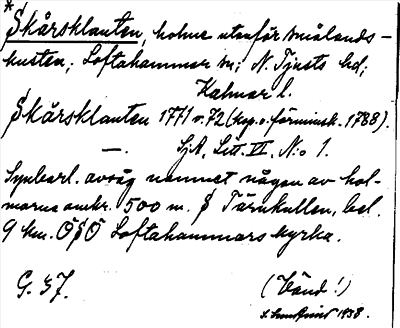 * Skårsklauten, holme utanför Smålands-
kusten; Loftahammar sn; N. Tjusts hd;
Kalmar l.
Skårsklauten 1771 o. 72 (kop. o. förminsk. 1788).
—. SjA, Litt. VI, N:o 1.
Synbarl. avsåg namnet någon av hol-
marna omkr. 500 m. S Tärnkullen, bel.
9 km. ÖSÖ Loftahammars kyrka.
G. 37. (Vänd!)
1938.